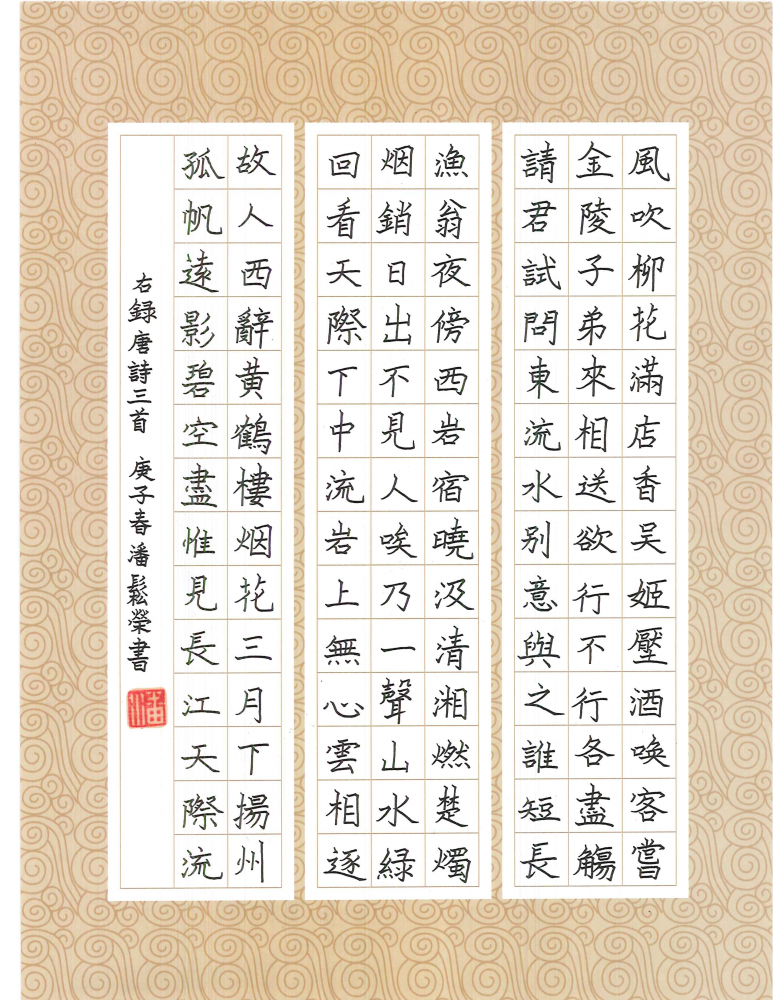 風吹柳花滿店香吴姬壓酒喚客嘗
金陵子弟來相送欲行不行各盡觴
請君試問東流水别意與之誰短長
漁翁夜傍西岩宿曉汲清湘燃楚燭
烟銷日出不見人唉乃一聲山水緑
回看天際下中流岩上無心雲相逐
故人西辭黄鶴樓烟花三月下揚州
孤帆遠影碧空盡惟見長江天際流
右録唐詩三首 庚子春潘鬆榮書